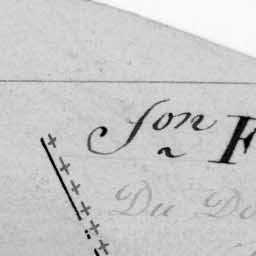 Son F
Du Do